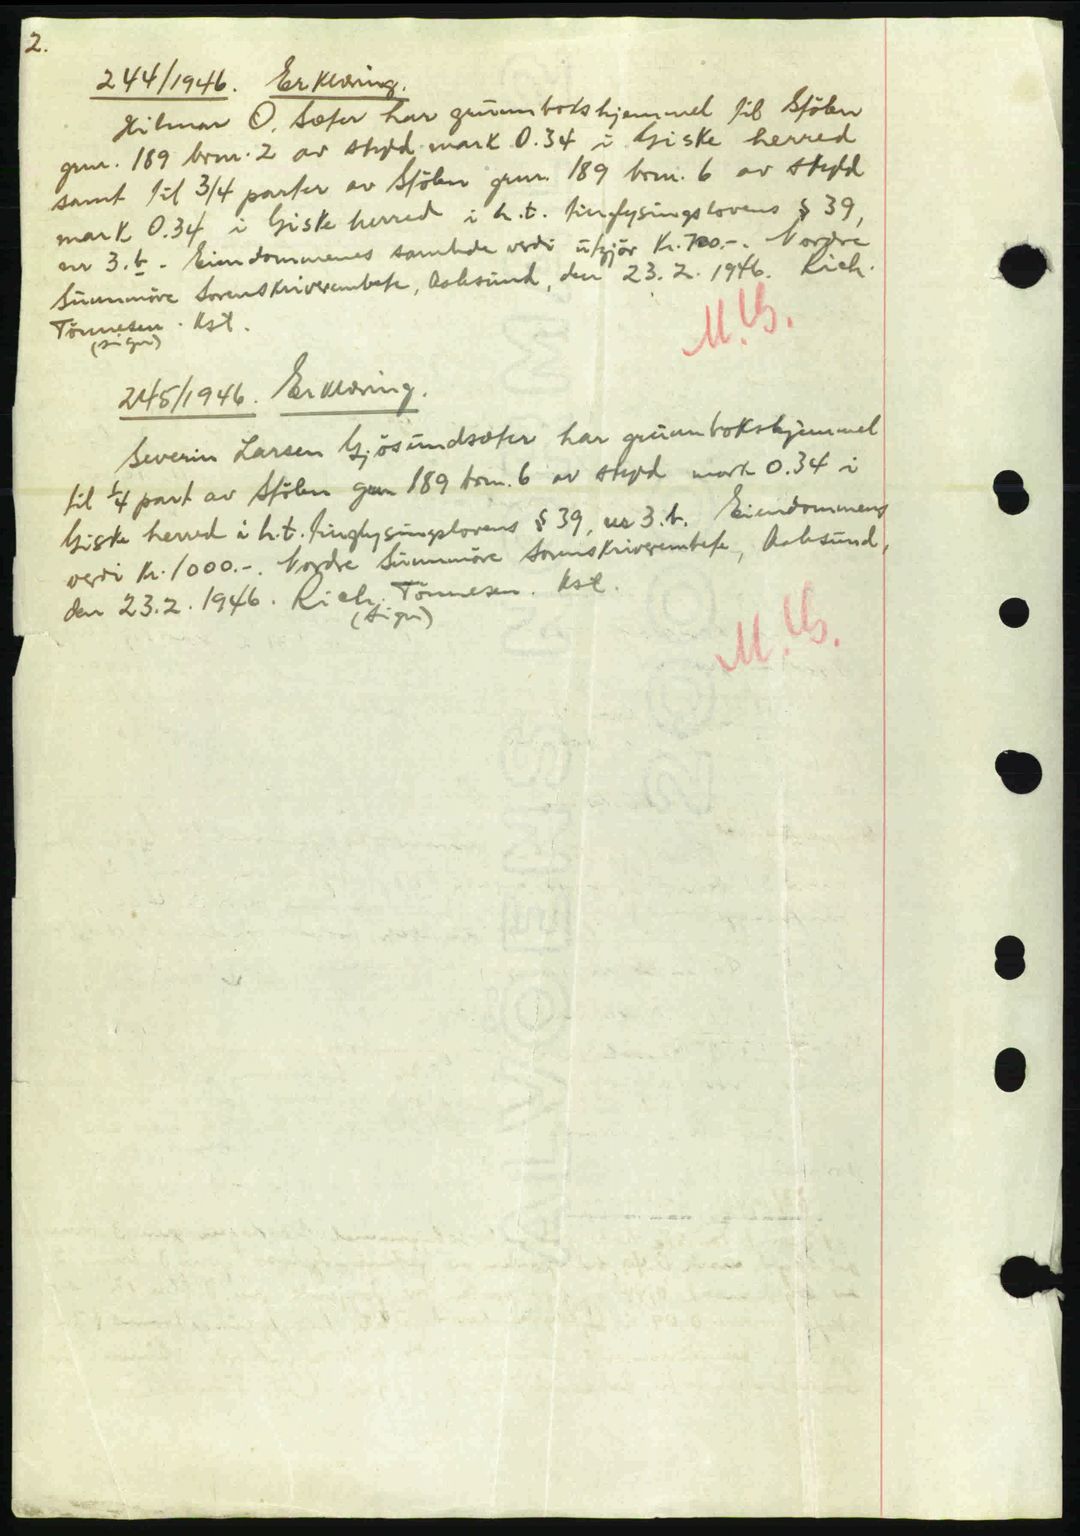 2.
244/1946. Erklæring.
Hilmar O. Sæter har grunnbokshjemmel til Stølen
gnr. 189 bnr. 2 av skyld mark 0.34 i Giske herred
samt til 3/4 parter av Stølen gnr. 189 bnr. 6 av skyld
mark 0.34 i Giske herred i h.t. tinglysingslovens § 39,
nr 3.b. Eiendommenes samlede verdi utgjør Kr. 700.-. Nordre
Sunnmøre Sorenskriverembete, Aalesund, den 23.2.1946. Rich.
Tønnesen. Kst.
(sign)
M.B.
245/1946. Erklæring.
Severin Larsen Gjøsundsæter har grunnbokshjemmel
til 1/4 part av Stølen gnr 189 bnr. 6 av skyld mark 0.34 i
Giske herred i h.t. tinglysingslovens § 39, nr 3.b. Eiendommens
verdi Kr. 1000.-. Nordre Sunnmøre Sorenskriverembete, Aalesund,
den 23.2.1946. Rich. Tønnesen. Kst.
(sign)
M.B.